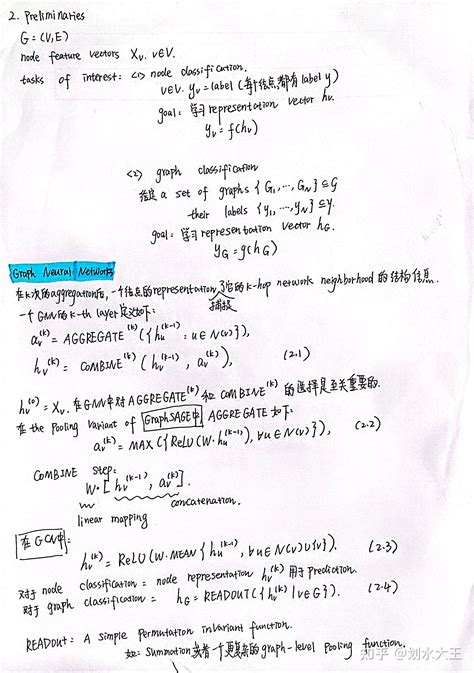 2. Preliminaries
G = (V, E)
node feature vectors Xv. v∈V.
tasks of interest: <1> node classification.
v∈V. yv = label (每个结点都有label y)
goal: 学习 representation vector hv.
yv = f(hv)
<2> graph classification
给定 a set of graphs {G1, ..., GN} ⊆ G
their labels {y1, ..., yN} ⊆ y.
goal: 学习 representation vector hG.
yG = g(hG)
Graph Neural Networks
在k次的aggregation后, 一个结点的representation 了它的k-hop network neighborhood 的结构信息.
捕捉
一个GNN的k-th layer 定义如下:
av^(k) = AGGREGATE^(k) ({hu^(k-1) : u∈N(v)}),
hv^(k) = COMBINE^(k) (hv^(k-1), av^(k)), (2.1)
hv^(0) = Xv. 在GNN中对AGGREGATE^(k) 和 COMBINE^(k) 的选择是至关重要的.
在 the pooling variant of GraphSAGE中, AGGREGATE 如下:
av^(k) = MAX({ReLU(W·hu^(k-1)), ∀u∈N(v)}), (2.2)
COMBINE step:
W·[hv^(k-1), av^(k)].
concatenation.
linear mapping
在GCN中:
hv^(k) = ReLU(W·MEAN{hu^(k-1), ∀u∈N(v)∪{v}}). (2.3)
对于 node classification = node representation hv^(k) 用于 prediction.
对于 graph classification = hG = READOUT({hv^(k) | v∈G}). (2.4)
READOUT: A simple permutation invariant function.
如: Summation 或者一个更复杂的 graph-level pooling function.
知乎 @划水大王